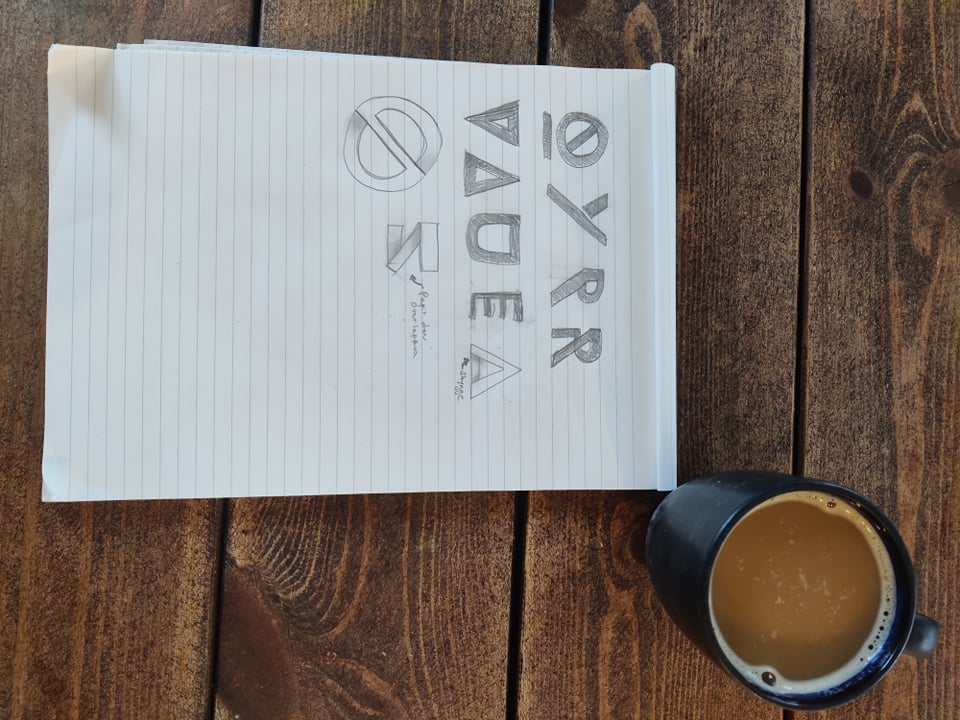 ØYRR
VAUEA
skygge
Ø Σ Papir der
overlapper